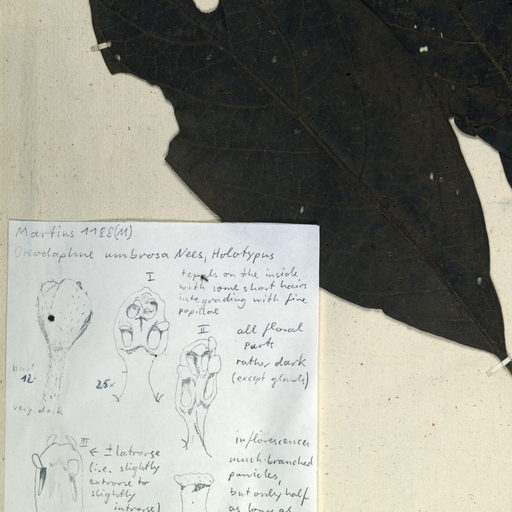 Martius 1188(M)
Oreodaphne umbrosa Nees, Holotypus
I
tepals on the inside
with some short hairs
intergrading with fine
papillae
II
all floral
parts
rather dark
(except glands)
bud
12
25x
very dark
III
← ± latrorse
(i.e. slightly
extrorse to
slightly
introrse)
inflorescences
much-branched
panicles,
but only half
as long as